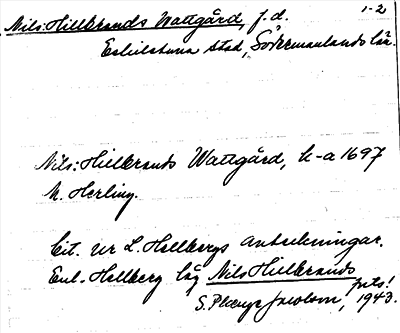 1-2
Nils:Hillbrands Wattgård, f.d.
Eskilstuna stad, Södermanlands län.
Nils:Hillbrands Wattgård, h-a 1697
N. Herling.
Cit. ur L. Hellbergs anteckningar.
Enl. Hellberg låg Nils Hillbrands
S. Jacobson, 1943.